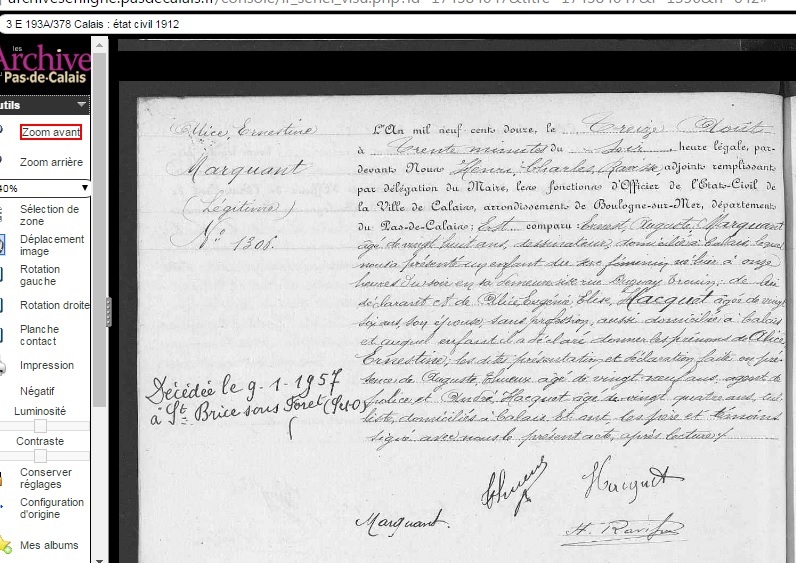 3 E 193A/378 Calais : état civil 1912
les
Archive
Pas-de-Calais
utils
Zoom avant
Zoom arrière
40%
Sélection de
zone
Déplacement
image
Rotation
gauche
Rotation droite
Planche
contact
Impression
Négatif
Luminosité
Contraste
Conserver
réglages
Configuration
d'origine
Mes albums
Alice, Ernestine
Marquant
(Légitime)
N° 1306.
Décédée le 9-1-1957
à St Brice sous Foret (S et O)
L'An mil neuf cent douze, le Treize Août
à Trente minutes du Soir heure légale, par-
devant Nous Henri, Charles, adjoint remplissant
par délégation du Maire, les fonctions d'Officier de l'Etat-Civil de
la Ville de Calais, arrondissement de Boulogne-sur-Mer, département
du Pas-de-Calais; Est comparu: Ernest, Auguste, Marquant
âgé de vingt huit ans, dessinateur, domicilié à Calais, lequel
nous a présenté un enfant du sexe féminin, né hier à onze
heures du soir en sa demeure rue Duguay Trouin; de lui
déclarant et de Alice Eugénie Elise, Hacquet âgée de vingt
six ans, son épouse, sans profession, aussi domiciliée à Calais
et auquel enfant il a déclaré donner les prénoms de Alice,
Ernestine; les dites présentation et déclaration faites en pré-
sence de Auguste, âgé de vingt neuf ans, agent de
police, et André, Hacquet âgé de vingt quatre ans,
domiciliés à Calais. Et ont les père et témoins
signé avec nous le présent acte, après lecture.
Hacquet
Marquant.